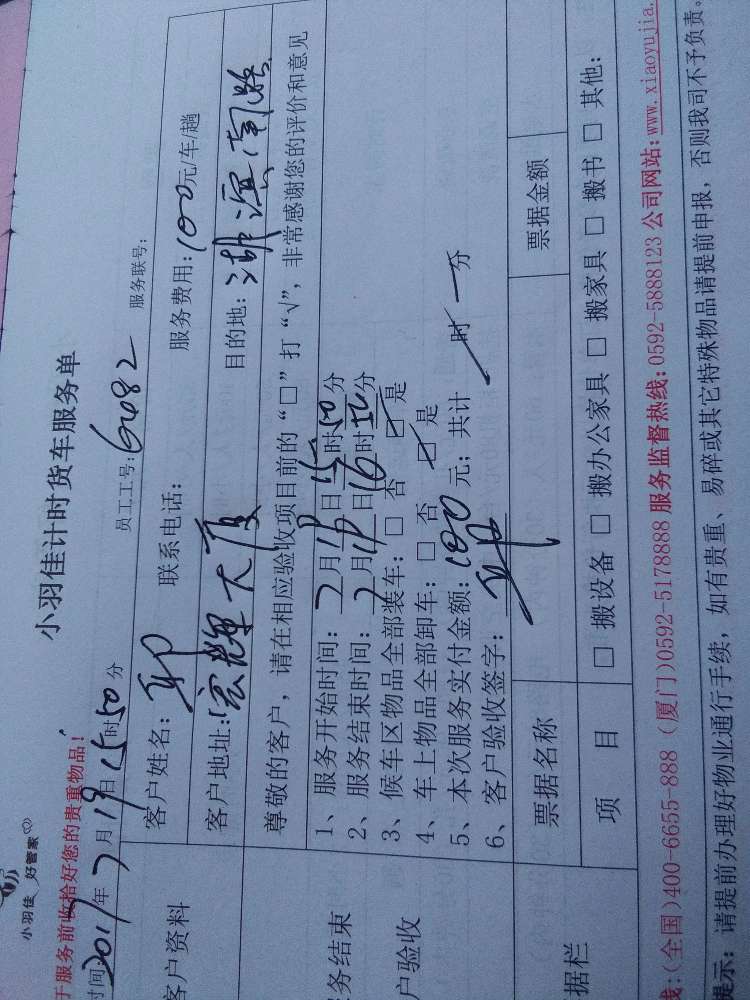 小羽佳 好管家
小羽佳计时货车服务单
于服务前收拾好您的贵重物品!
时间:2017年7月19日15时50分 员工工号:6082 服务联号:
客户资料
客户姓名: 联系电话: 服务费用:100元/车/趟
客户地址:宏辉大厦 目的地:湖滨南路
尊敬的客户,请在相应验收项目前的“□”打“√”,非常感谢您的评价和意见
务结束
户验收
1、服务开始时间:7月19日15时50分
2、服务结束时间:7月19日16时50分
3、候车区物品全部装车:□ 否 ☑ 是
4、车上物品全部卸车:□ 否 ☑ 是
5、本次服务实付金额:100元;共计 / 时 一 分
6、客户验收签字:
据栏
票据名称 票据金额
项 目 □ 搬设备 □ 搬办公家具 □ 搬家具 □ 搬书 □ 其他:
线:(全国)400-6655-888 (厦门)0592-5178888 服务监督热线:0592-5888123 公司网站:www.xiaoyujia.
提示:请提前办理好物业通行手续,如有贵重、易碎或其它特殊物品请提前申报,否则我司不予负责。